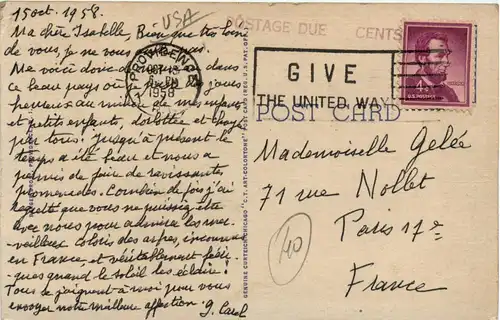 15 oct. 1958.
USA
Ma chère Isabelle, Bien que très loin
de vous, je ne vous oublie pas.
Me voici donc dans
ce beau pays où je passe des jours
heureux au milieu de mes enfants
et petits enfants, dorlottée et choyée
par tous! Jusqu'à présent le
temps a été beau et nous a
permis de faire de ravissantes
promenades. Combien de fois j'ai
regretté que vous ne puissiez être
avec nous pour admirer les mer-
veilleux coloris des arbres, inconnus
en France et véritablement féeri-
ques quand le soleil les éclaire!
Tous se joignent à moi pour vous
envoyer notre meilleure affection
POSTAGE DUE CENTS
PROVIDENCE
1958
GIVE
THE UNITED WAY
4¢
U.S. POSTAGE
POST CARD
GENUINE CURTEICH-CHICAGO "C.T. ART-COLORTONE" POST CARD (REG. U.S. PAT. OFF.)
Mademoiselle Gelée
71 rue Nollet
Paris 17e
France
40